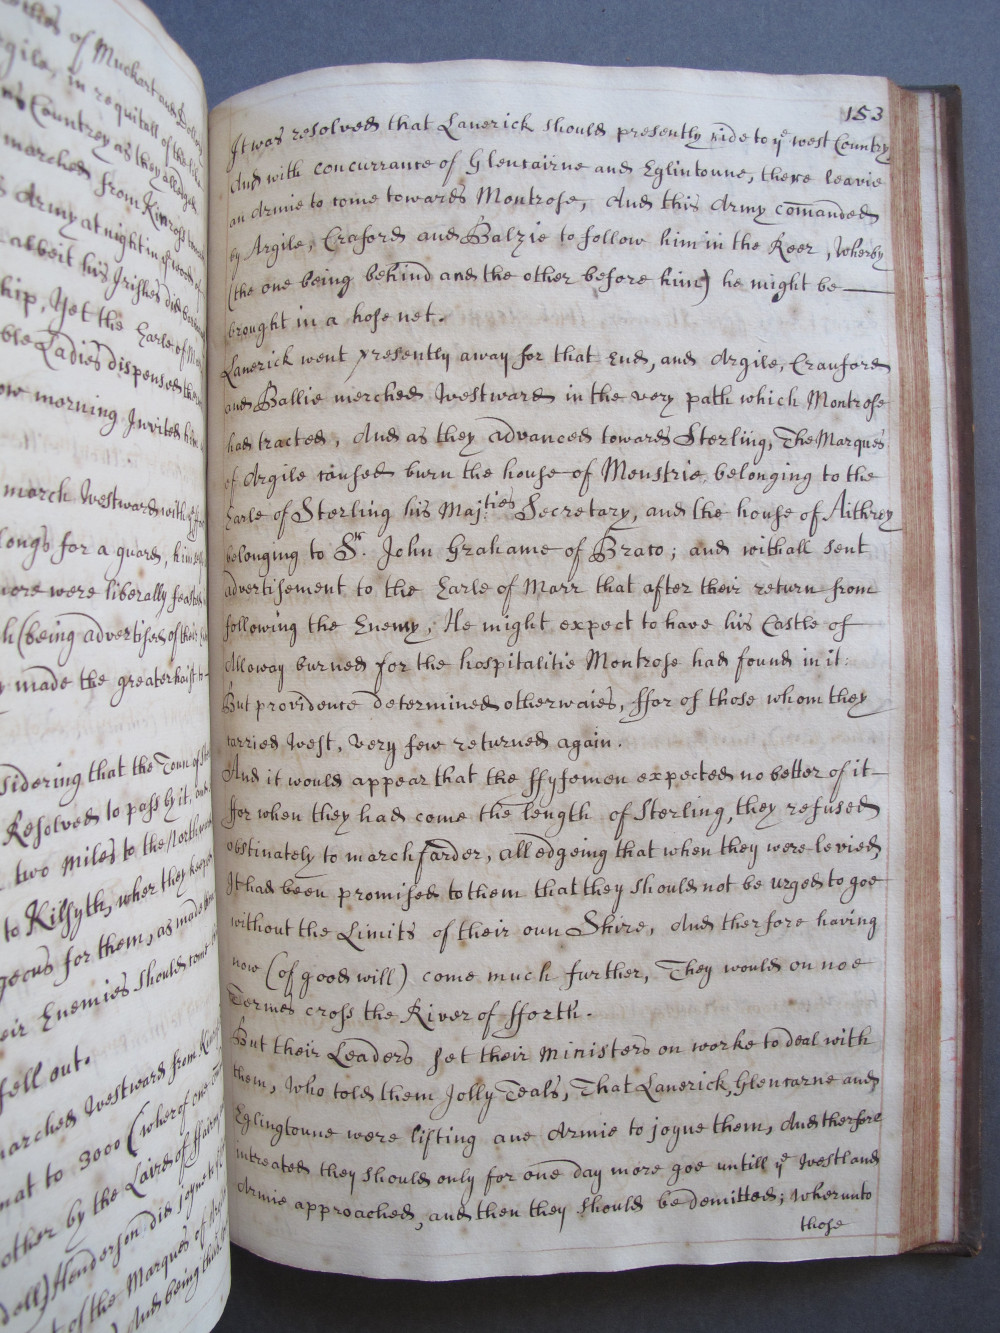 of Muckart and Dollor
Argile, in requitall of the like
Countrey as they alledged
marched from Kinross
Army at night in
albeit his Irishes did
ship, Yet the Earle of
Ladies dispensed
morning Invited him
march Westward with
longs for a guard, him
more were liberally feasted
(being advertised of
made the greater haist to
sidering that the Toun of
Resolved to pass by it, and
two miles to the Northward
to Kilsyth, wher they
for them, as made
eir Enemies should come
fell out.
marched Westward from
to 3000 (wherof one
other by the Laird of
Henderson did Joyne
of the Marques of
And being
153
It was resolved that Lanerick should presently ride to yᵉ west Countrey
And with concurrance of Glencairne and Eglintoune, there leavie
an Armie to come towards Montrose, And this Army comanded
by Argile, Craford and Balzie to follow him in the Reer, Wherby
(the one being behind and the other before him) he might be
brought in a hose net.
Lanerick went presently away for that End, and Argile, Crauford
and Ballie merched Westward in the very path which Montrose
had tracted, And as they advanced towards Sterling, The Marques
of Argile caused burn the house of Menstrie belonging to the
Earle of Sterling his Maj:ties Secretary, and the house of Aithrey
belonging to Sr. John Grahame of Braco; and withall sent
advertisement to the Earle of Marr that after their return from
following the Enemy, He might expect to have his Castle of
Alloway burned for the hospitalitie Montrose had found in it:
But providence determined otherwaies, ffor of those whom they
carried West, very few returned again.
And it would appear that the ffyfemen expected no better of it
ffor when they had come the length of Sterling, they refused
obstinately to march farder, alledgeing that when they were levied,
It had been promised to them that they should not be urged to goe
without the Limits of their oun Shire, And therfore having
now (of good will) come much further, They would on noe
Termes cross the River of fforth.
But their Leaders set their Ministers on worke to deal with
them, Who told them Jolly Teals, That Lanerick, Glencarne and
Eglingtoune were lifting ane Armie to joyne them, And therfore
intreated they should only for one day more goe untill yᵉ Westland
Armie approached, and then they should be demitted; Wherunto
those